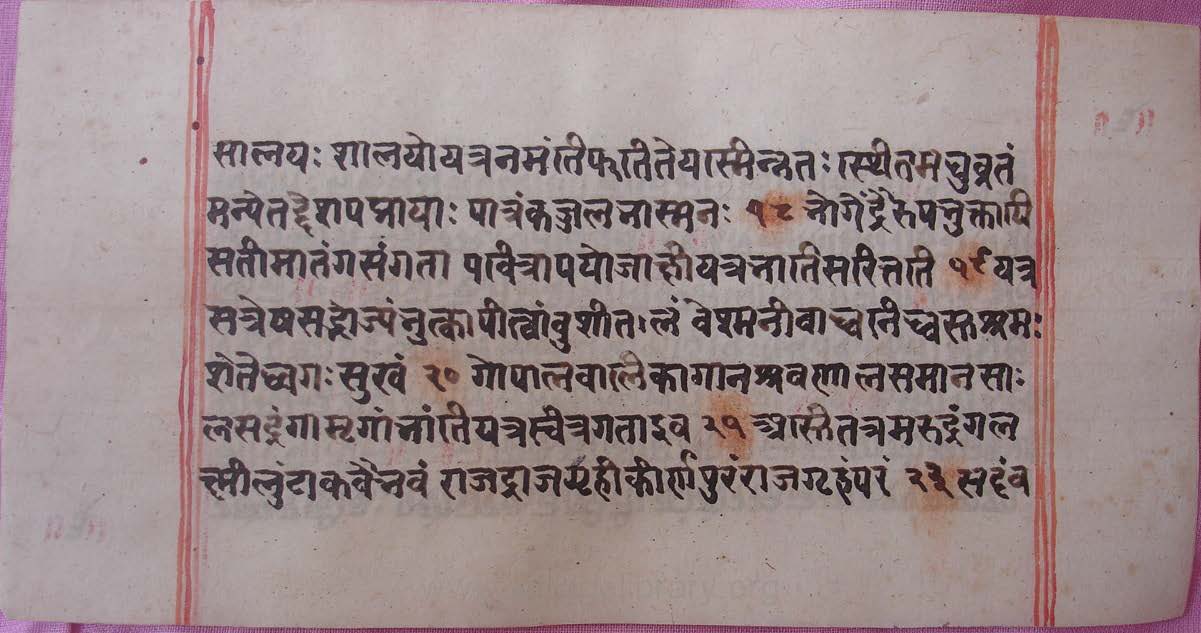 सालयः शालयोयत्रनमंतिफलितेयास्मिन्नतः ।स्थीतमधुव्रतं
मन्येतद्देशपद्मायाः पात्रंकज्जलनास्मनः १८ नोगेंद्रैरुपनुक्तापि
सतीमातंगसंगता पवित्रापयोजाह्नीयत्रनातिसरित्तति १९ यत्र
सत्रेष्यसद्भोज्यंनुत्कापीत्वांवुशीतालं वेश्मनीवाच्वनिच्वस्तश्रमः
शेतेध्वगः सुखं २० गोपालवालिकागानश्रवणालसमानसाः
लसद्रंगामृगांनांतीयत्रस्चित्रगताइव २१ अस्तितत्रमरुद्रंगल
क्ष्मीलुंटाकवैनवं राजद्राजगृहीकीर्णपुरंराजगृहंपरं २२ सदंव
www. library.org